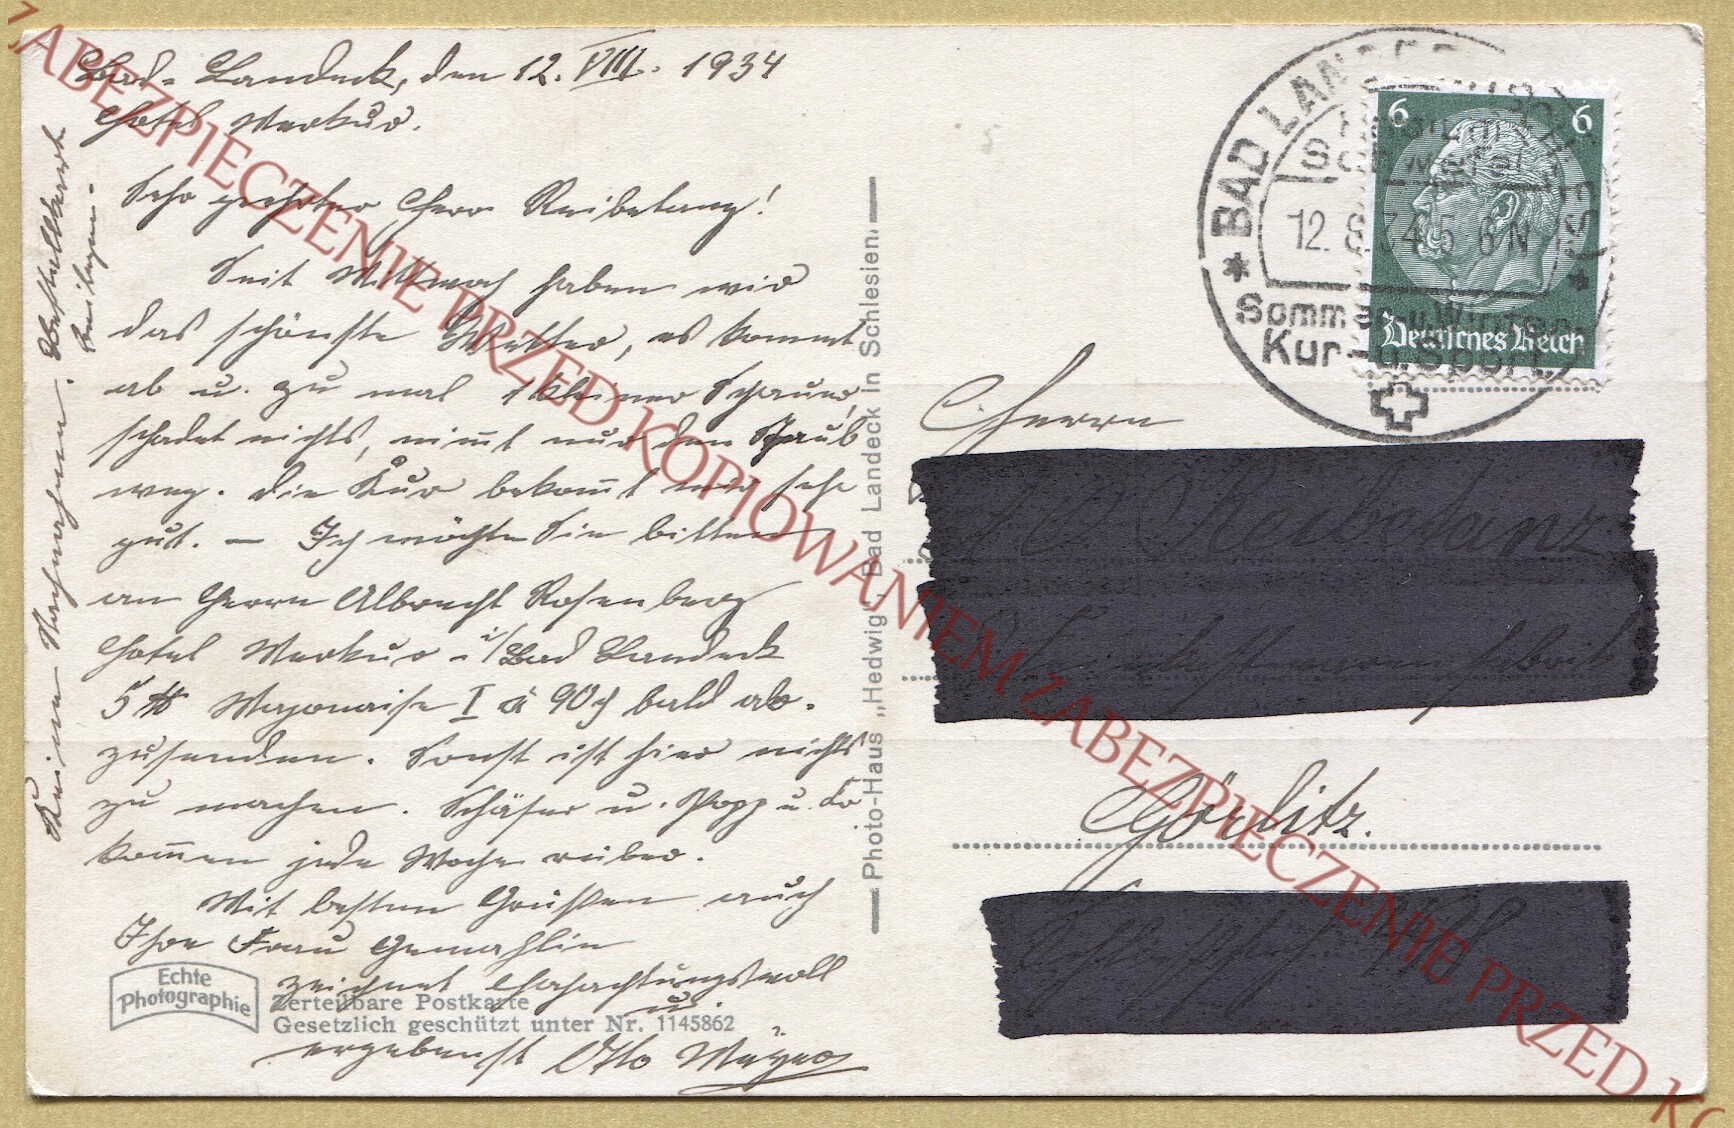 Bad-Landeck, den 12. VIII. 1934
Hotel Merkur.
Sehr geehrter Herr Reibetanz!
Seit Mittwoch haben wir
das schönste Wetter, es kommt
ab u. zu mal 1 kleiner Schauer,
schadet nichts, nim̄t nur den Staub
weg. Die Kur bekom̄t mir sehr
gut. — Ich möchte Sie bitten
an Herrn Albrecht Rosenberg
Hotel Merkur - i/Bad Landeck
5 ℔ Mayonaise I à 90 bald ab-
zusenden. Sonst ist hier nichts
zu machen. Schäfer u. Popp u. Co
kom̄en jede Woche rüber.
Mit besten Grüßen auch
Ihre Frau Gemahlin
zeichnet Hochachtungsvoll
u.
ergebenst Otto
Keine Nachnahme.
beilegen.
Photo-Haus „Hedwig", Bad Landeck in Schlesien.
Echte
Photographie
Zerteilbare Postkarte
Gesetzlich geschützt unter Nr. 1145862
BAD LANDECK
12. 8. 34. 5-6 N
Sommer- u. Winter-
Kur- u. Sport
6 6
Deutsches Reich
Herrn
Reibetanz
Görlitz.
ZABEZPIECZENIE PRZED KOPIOWANIEM ZABEZPIECZENIE PRZED KO